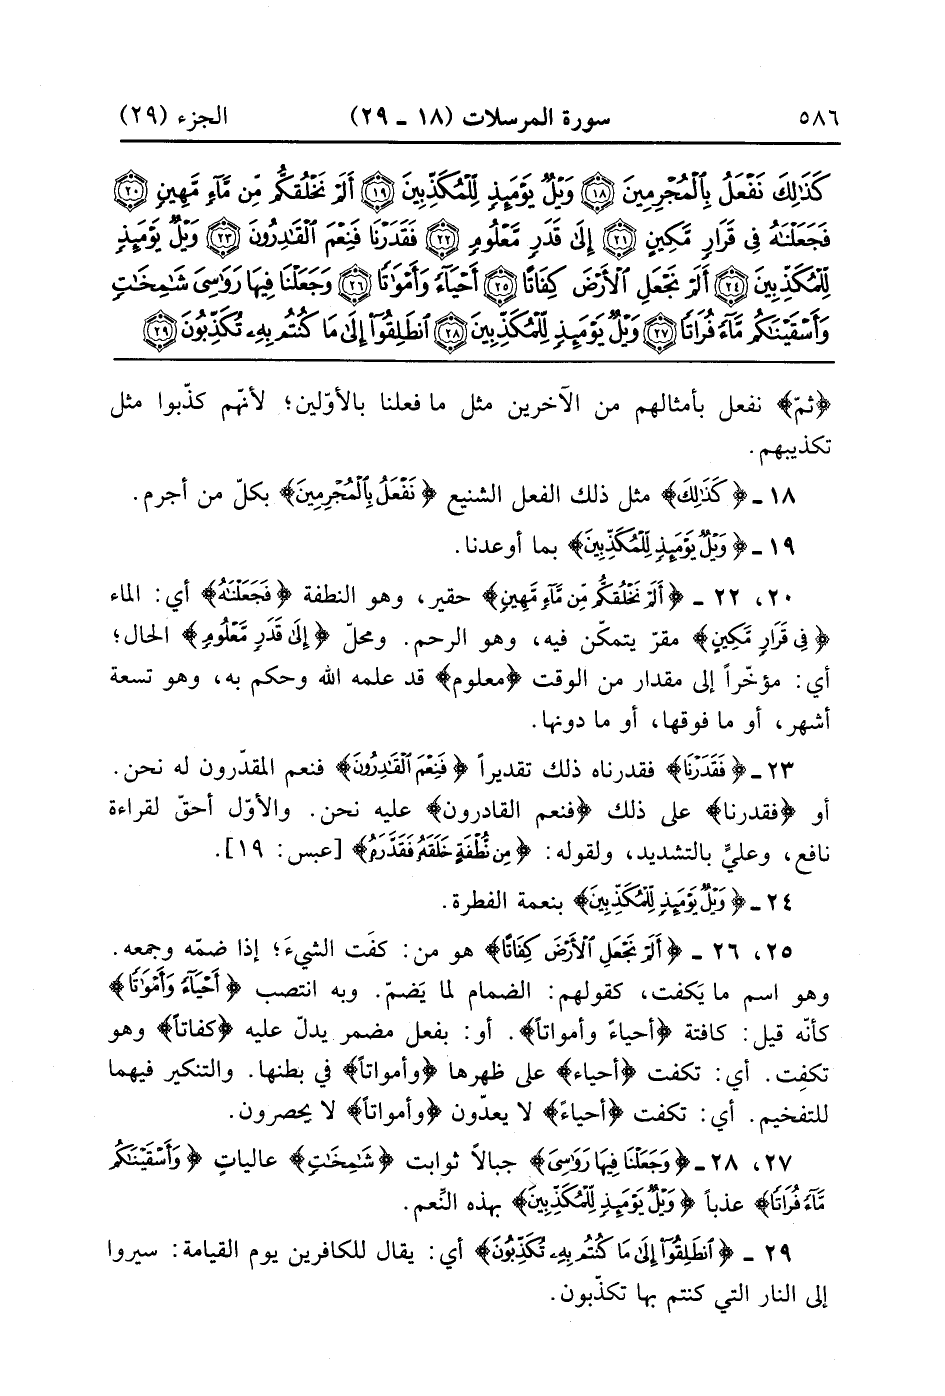 ٥٨٦ سورة المرسلات (١٨ ـ ٢٩) الجزء (٢٩)
كَذَٰلِكَ نَفْعَلُ بِٱلْمُجْرِمِينَ ﴿١٨﴾ وَيْلٌ يَوْمَئِذٍ لِّلْمُكَذِّبِينَ ﴿١٩﴾ أَلَمْ نَخْلُقكُّم مِّن مَّآءٍ مَّهِينٍ ﴿٢٠﴾
فَجَعَلْنَٰهُ فِى قَرَارٍ مَّكِينٍ ﴿٢١﴾ إِلَىٰ قَدَرٍ مَّعْلُومٍ ﴿٢٢﴾ فَقَدَرْنَا فَنِعْمَ ٱلْقَٰدِرُونَ ﴿٢٣﴾ وَيْلٌ يَوْمَئِذٍ
لِّلْمُكَذِّبِينَ ﴿٢٤﴾ أَلَمْ نَجْعَلِ ٱلْأَرْضَ كِفَاتًا ﴿٢٥﴾ أَحْيَآءً وَأَمْوَٰتًا ﴿٢٦﴾ وَجَعَلْنَا فِيهَا رَوَٰسِىَ شَٰمِخَٰتٍ
وَأَسْقَيْنَٰكُم مَّآءً فُرَاتًا ﴿٢٧﴾ وَيْلٌ يَوْمَئِذٍ لِّلْمُكَذِّبِينَ ﴿٢٨﴾ ٱنطَلِقُوٓا۟ إِلَىٰ مَا كُنتُم بِهِۦ تُكَذِّبُونَ ﴿٢٩﴾
﴿ثمّ﴾ نفعل بأمثالهم من الآخرين مثل ما فعلنا بالأوّلين؛ لأنهم كذّبوا مثل
تكذيبهم.
١٨ ـ ﴿كَذَٰلِكَ﴾ مثل ذلك الفعل الشنيع ﴿نَفْعَلُ بِٱلْمُجْرِمِينَ﴾ بكلّ من أجرم.
١٩ ـ ﴿وَيْلٌ يَوْمَئِذٍ لِّلْمُكَذِّبِينَ﴾ بما أوعدنا.
٢٠، ٢٢ ـ ﴿أَلَمْ نَخْلُقكُّم مِّن مَّآءٍ مَّهِينٍ﴾ حقير، وهو النطفة ﴿فَجَعَلْنَٰهُ﴾ أي: الماء
﴿فِى قَرَارٍ مَّكِينٍ﴾ مقرّ يتمكّن فيه، وهو الرحم. ومحلّ ﴿إِلَىٰ قَدَرٍ مَّعْلُومٍ﴾ الحال؛
أي: مؤخّراً إلى مقدار من الوقت ﴿معلوم﴾ قد علمه الله وحكم به، وهو تسعة
أشهر، أو ما فوقها، أو ما دونها.
٢٣ ـ ﴿فَقَدَرْنَا﴾ فقدرناه ذلك تقديراً ﴿فَنِعْمَ ٱلْقَٰدِرُونَ﴾ فنعم المقدّرون له نحن.
أو ﴿فقدرنا﴾ على ذلك ﴿فنعم القادرون﴾ عليه نحن. والأوّل أحقّ لقراءة
نافع، وعليٍّ بالتشديد، ولقوله: ﴿مِن نُّطْفَةٍ خَلَقَهُۥ فَقَدَّرَهُۥ﴾ [عبس: ١٩].
٢٤ ـ ﴿وَيْلٌ يَوْمَئِذٍ لِّلْمُكَذِّبِينَ﴾ بنعمة الفطرة.
٢٥، ٢٦ ـ ﴿أَلَمْ نَجْعَلِ ٱلْأَرْضَ كِفَاتًا﴾ هو من: كفَت الشيءَ؛ إذا ضمّه وجمعه.
وهو اسم ما يَكفت، كقولهم: الضمام لما يَضمّ. وبه انتصب ﴿أَحْيَآءً وَأَمْوَٰتًا﴾
كأنّه قيل: كافتة ﴿أحياءً وأمواتاً﴾. أو: بفعل مضمر يدلّ عليه ﴿كفاتاً﴾ وهو
تكفِت. أي: تكفت ﴿أحياء﴾ على ظهرها ﴿وأمواتاً﴾ في بطنها. والتنكير فيهما
للتفخيم. أي: تكفت ﴿أحياءً﴾ لا يعدّون ﴿وأمواتاً﴾ لا يحصرون.
٢٧، ٢٨ ـ ﴿وَجَعَلْنَا فِيهَا رَوَٰسِىَ﴾ جبالاً ثوابت ﴿شَٰمِخَٰتٍ﴾ عالياتٍ ﴿وَأَسْقَيْنَٰكُم
مَّآءً فُرَاتًا﴾ عذباً ﴿وَيْلٌ يَوْمَئِذٍ لِّلْمُكَذِّبِينَ﴾ بهذه النِّعم.
٢٩ ـ ﴿ٱنطَلِقُوٓا۟ إِلَىٰ مَا كُنتُم بِهِۦ تُكَذِّبُونَ﴾ أي: يقال للكافرين يوم القيامة: سيروا
إلى النار التي كنتم بها تكذّبون.